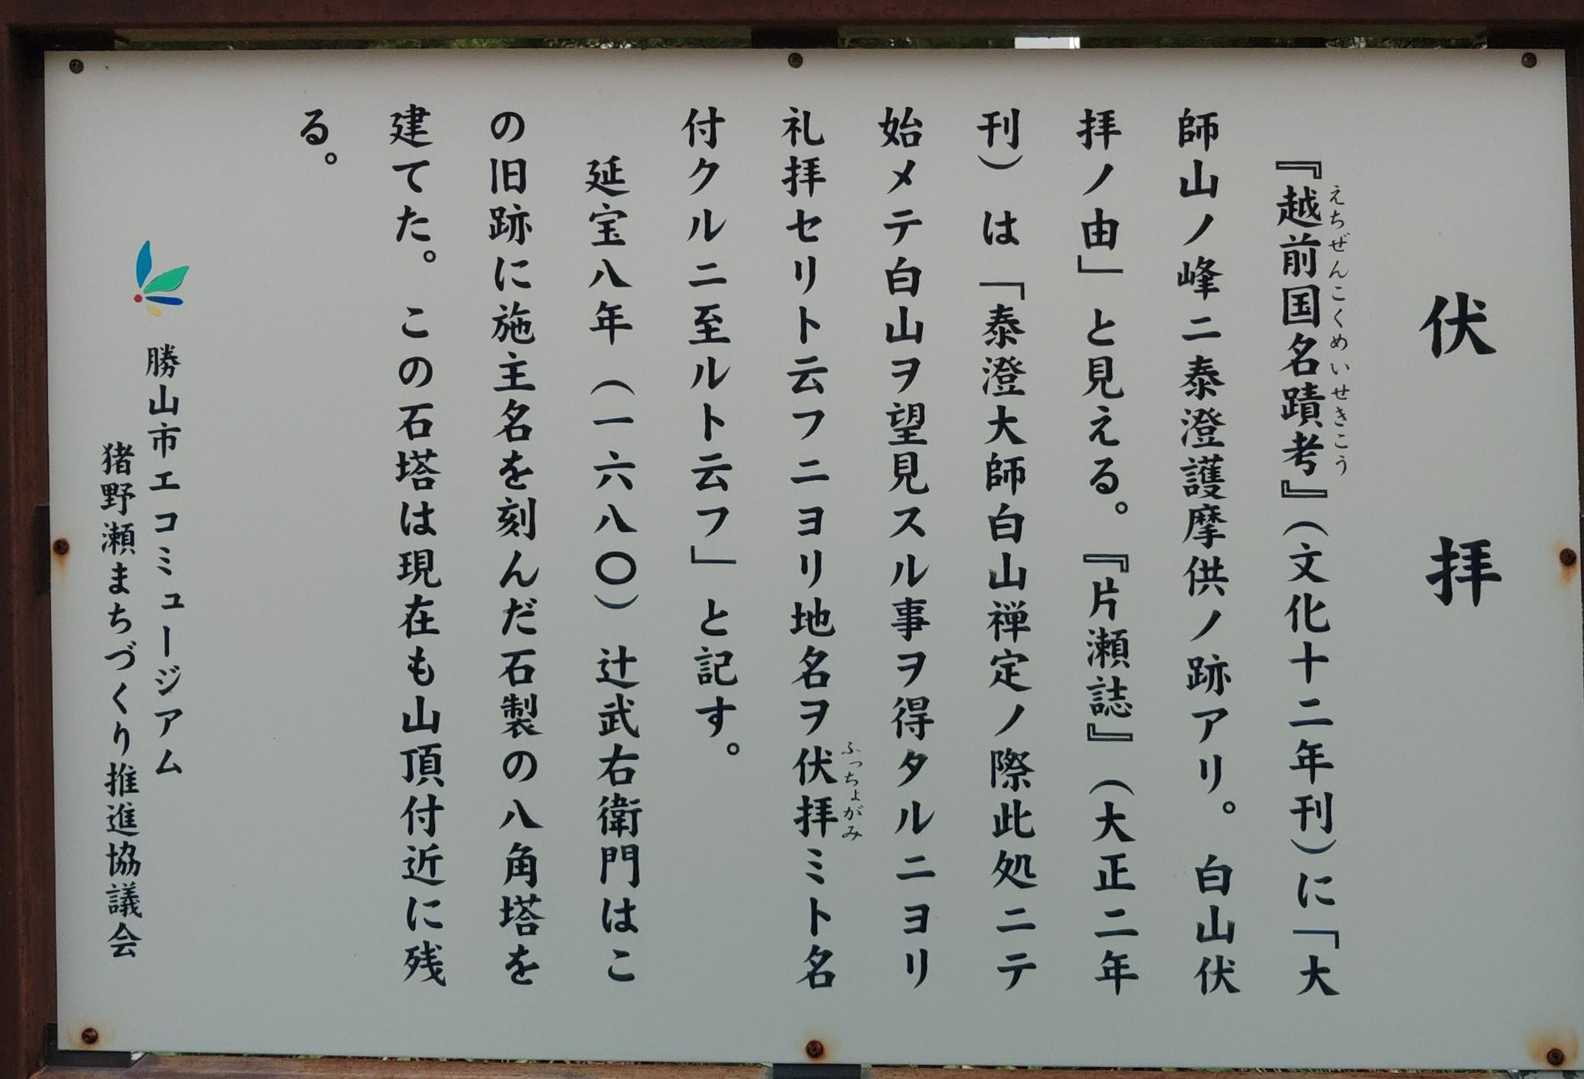 伏拝
『越前国名蹟考』（文化十二年刊）に「大
えちぜんこくめいせきこう
師山ノ峰ニ泰澄護摩供ノ跡アリ。白山伏
拝ノ由」と見える。『片瀬誌』（大正二年
刊）は「泰澄大師白山禅定ノ際此処ニテ
始メテ白山ヲ望見スル事ヲ得タルニヨリ
礼拝セリト云フニヨリ地名ヲ伏拝ミト名
ふっちょがみ
付クルニ至ルト云フ」と記す。
延宝八年（一六八〇）辻武右衛門はこ
の旧跡に施主名を刻んだ石製の八角塔を
建てた。この石塔は現在も山頂付近に残
る。
勝山市エコミュージアム
猪野瀬まちづくり推進協議会